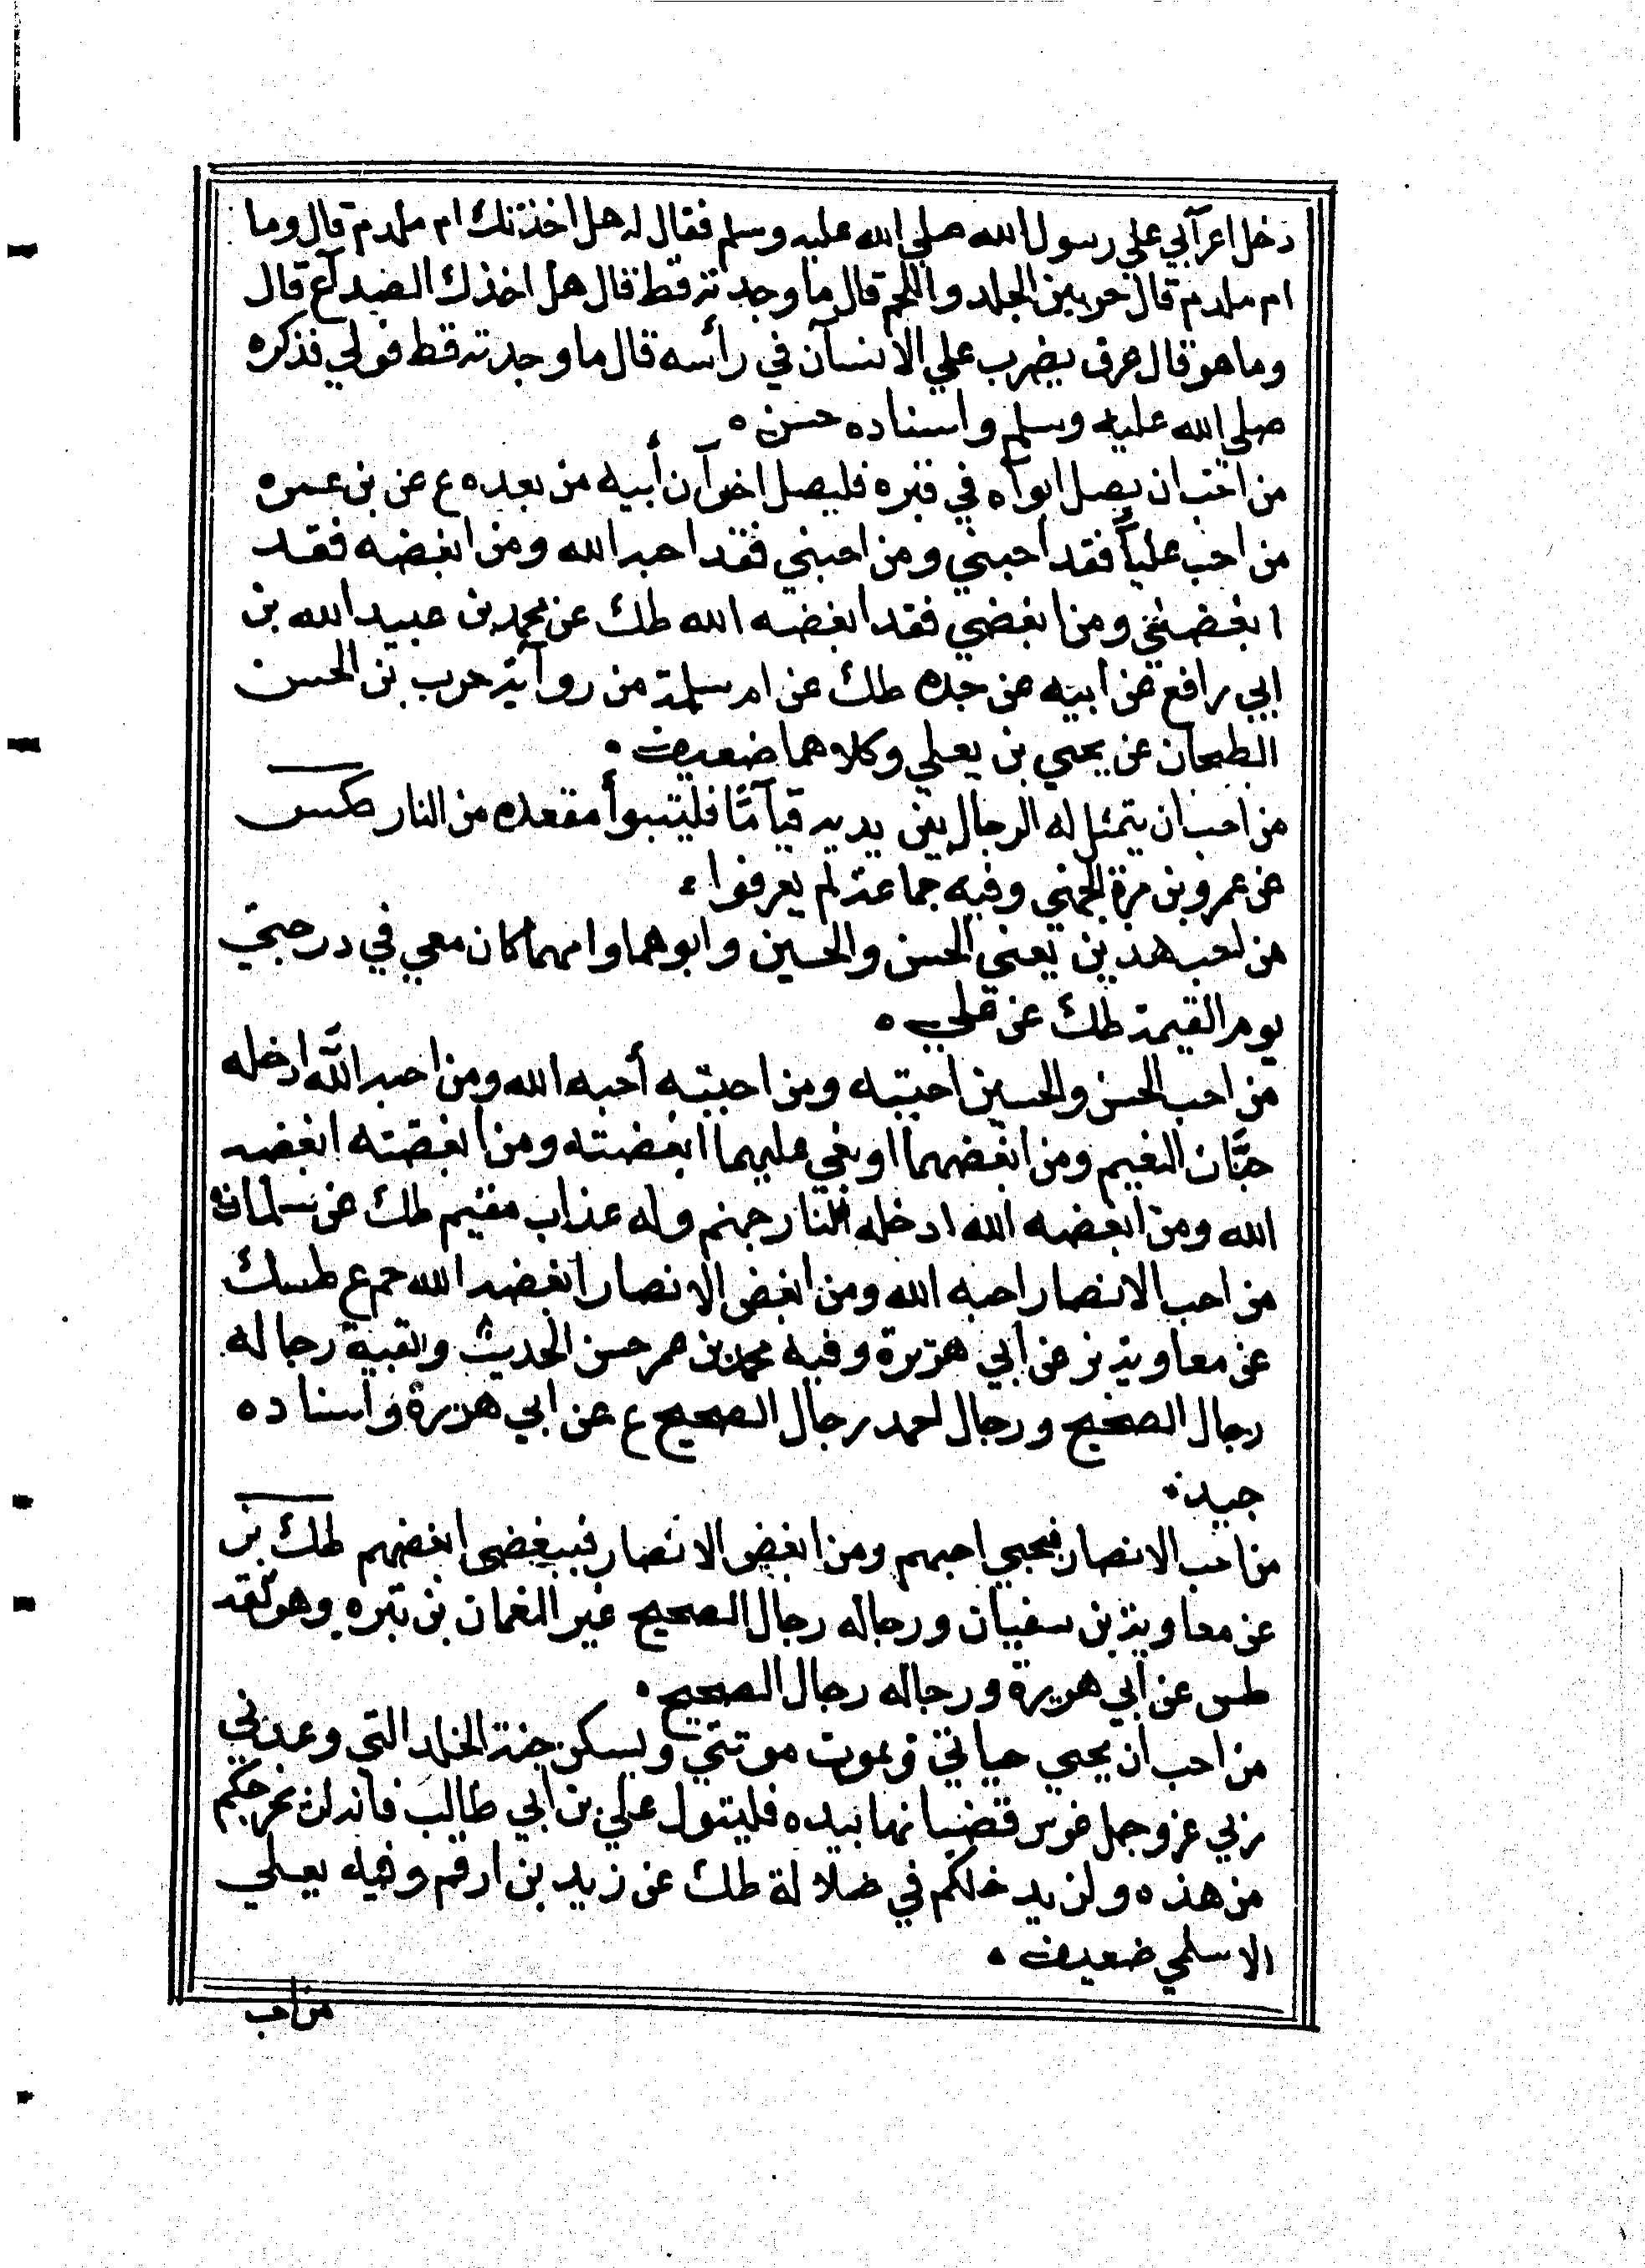 دخل اعرآبي علي رسول الله صلي الله عليه وسلم فقال له هل اخذتك ام ملدم قال وما
ام ملدم قال حر بين الجلد واللحم قال ما وجدته قط قال هل اخذك الصداع قال
وما هو قال عرق يضرب علي الانسآن في رأسه قال ما وجدته قط فولي فذكره
صلي الله عليه وسلم واسناده حسن ه
من احب ان يصل ابوآه في قبره فليصل اخوآن أبيه من بعده ع عن بن عمره
من احب علياً فقد احبني ومن احبني فقد احبه الله ومن ابغضه فقد
ابغضني ومن ابغضي فقد ابغضه الله طك عن محمد بن عبيد الله بن
ابي رافع عن أبيه عن جده طك عن ام سلمة من روآية حرب بن الحسن
الطحان عن يحيي بن يعلي وكلاهما ضعيف ه
من احب ان يتمثل له الرجال بين يديه قيآمًا فليتبوأ مقعده من النار طكس
عن عمرو بن مرة الجهني وفيه جماعة لم يعرفوا ء
من احب هذين يعني الحسن والحسين وابوهما وامهما كان معي في درجتي
يوم القيمة طك عن علي ه
من احب الحسن والحسين احببته ومن احببته أحبه الله ومن احبه اللّه ادخله
جنَّات النعيم ومن ابغضهما او بغي عليهما ابغضته ومن ابغضته ابغضه
الله ومن ابغضه الله ادخله نار جهنم وله عذاب مقيم طك عن سلمان ه
من احب الانصار احبه الله ومن ابغض الانصار ابغضه الله حم ع طسك
عن معاوية بز عن أبي هريرة وفيه محمد بن عمر حسن الحديث وبقية رجاله
رجال الصحيح ورجال احمد رجال الصحيح ع عن ابي هريرة واسناده
جيد ه
من احب الانصار فبحبي احبهم ومن ابغض الانصار فببغضي ابغضهم طك بز
عن معاوية بن سفيان ورجاله رجال الصحيح غير النعمان بن مره وهو ثقة
طس عن ابي هريرة ورجاله رجال الصحيح ه
من احب ان يحيي حياتي ويموت موتتي ويسكن جنة الخلد التي وعدني
ربي عز وجل غرس قضبانها بيده فليتول علي بن أبي طالب فانه لن يخرجكم
من هذه ولن يدخلكم في ضلالة طك عن زيد بن ارقم وفيه يعلي
الاسلمي ضعيف ه
من احب